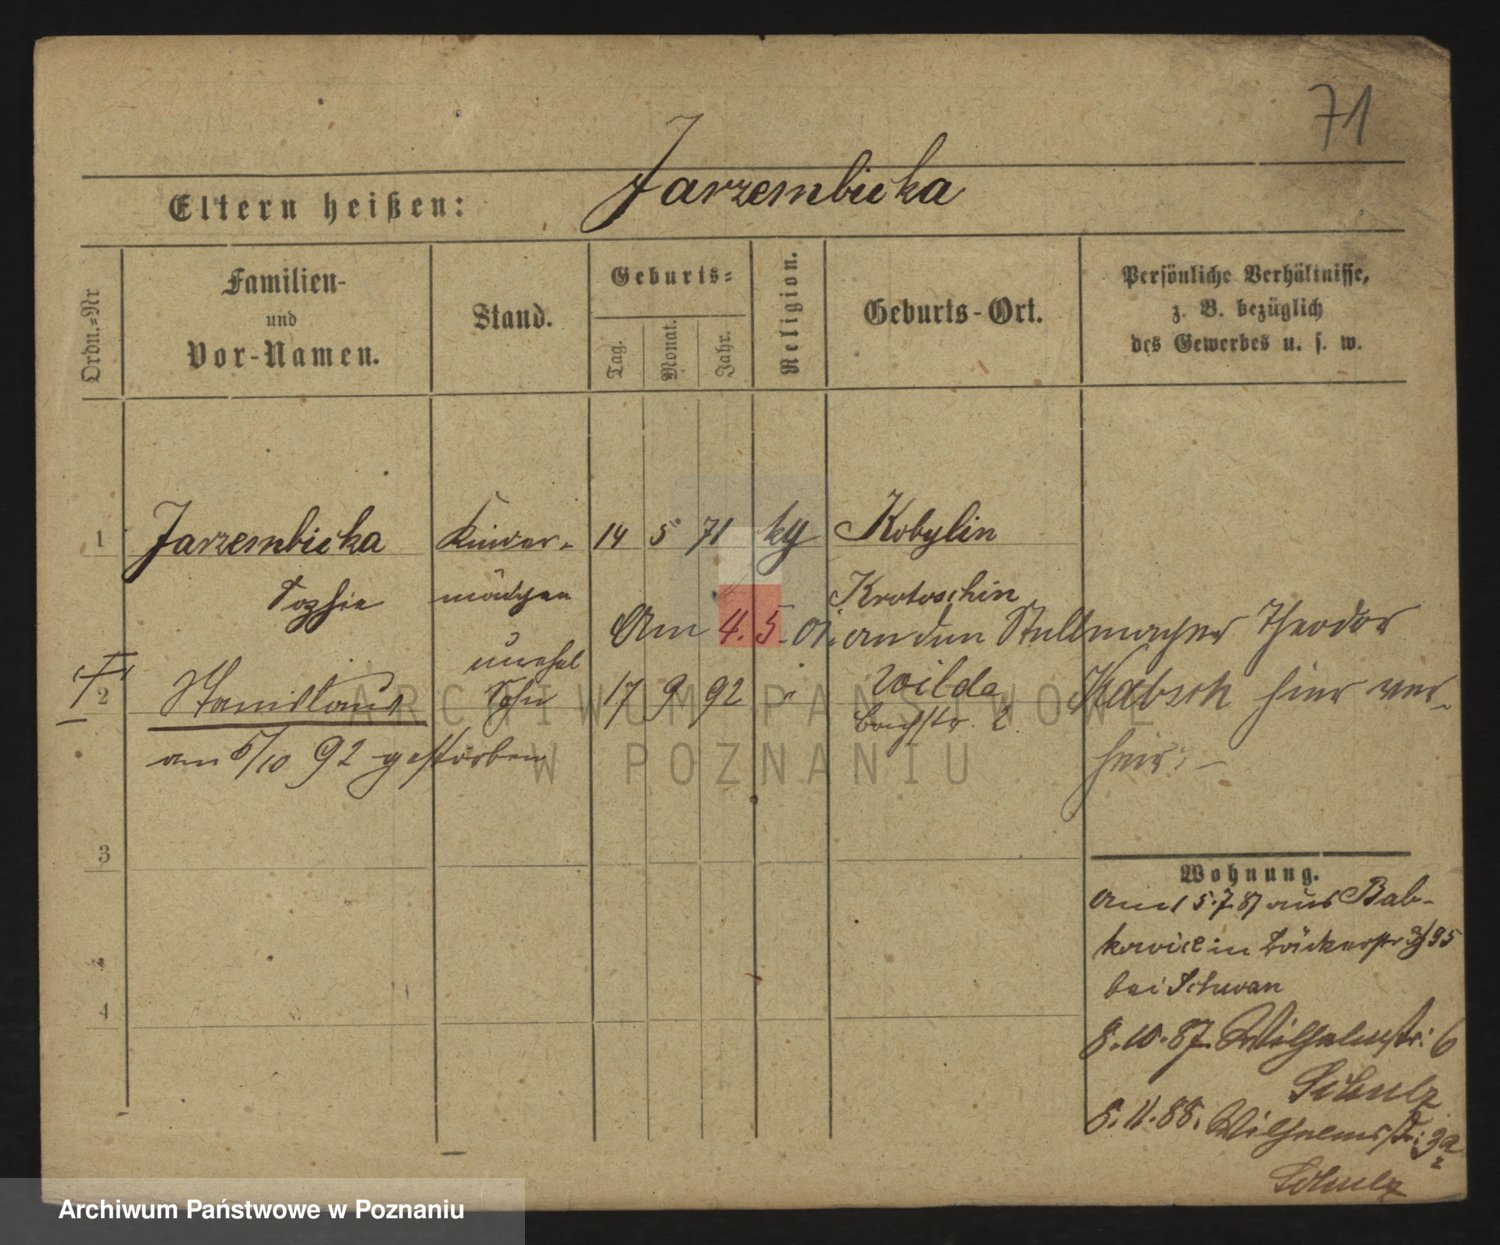 71
Jarzembicka
Eltern heißen:
Ordn.=Nr
Familien-
und
Vor-Namen.
Stand.
Geburts=
Tag.
Monat.
Jahr.
Religion.
Geburts-Ort.
Persönliche Verhältnisse,
z. B. bezüglich
des Gewerbes u. s. w.
1 Jarzembicka Kinder- 14 5 71 kg Kobylin
Sophie mädchen Krotoschin
Am 4. 5. 01. an den Stellmacher Theodor
unehel
2 Stanislaus Sohn 17 9 92 Wilda Kabsch hier ver-
Bachstr. 2. heir:
am 5/10 92 gestorben
3
4
Wohnung.
Am 15.7.87 aus Bab-
kowice in Bäckerstr 3/95
bei Schwan
8.10.87. Wilhelmstr: 6
Schulz
8.11.88. Wilhelmsstr: 3a
Schulz
ARCHIWUM PAŃSTWOWE
W POZNANIU
Archiwum Państwowe w Poznaniu